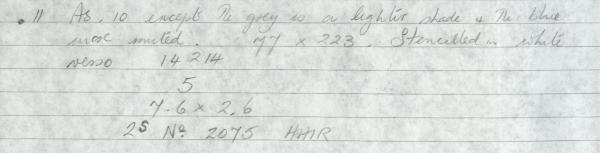 . 11 As . 10 except the grey is a lighter shade & the blue
more muted. 77 x 223. Stencilled in white
verso 14214
5
7.6 x 2.6
2S No 2075 HAIR